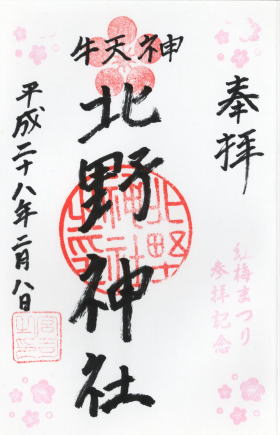 奉拝
紅梅まつり
参拝記念
牛天神
北野神社
平成二十八年二月八日